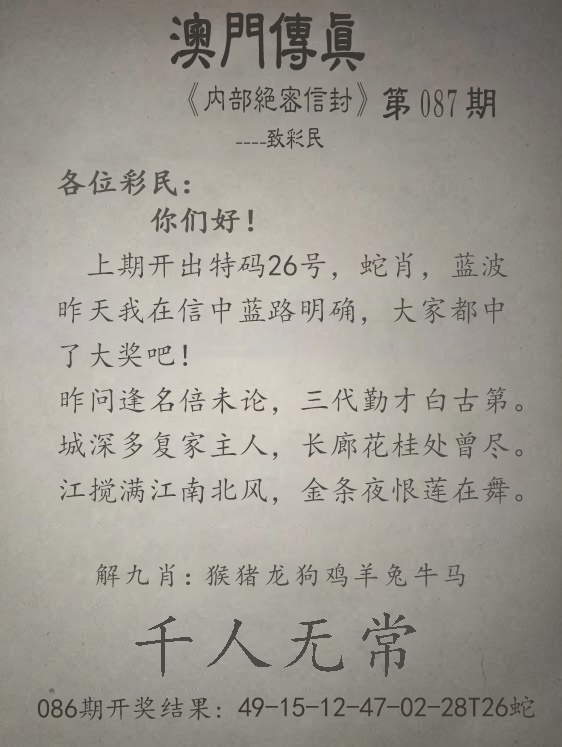 澳門傳眞
《内部絕密信封》第087期
----致彩民
各位彩民：
你们好！
上期开出特码26号，蛇肖，蓝波
昨天我在信中蓝路明确，大家都中
了大奖吧！
昨问逢名倍未论，三代勤才白古第。
城深多复家主人，长廊花桂处曾尽。
江搅满江南北风，金条夜恨莲在舞。
解九肖：猴猪龙狗鸡羊兔牛马
千人无常
086期开奖结果：49-15-12-47-02-28T26蛇